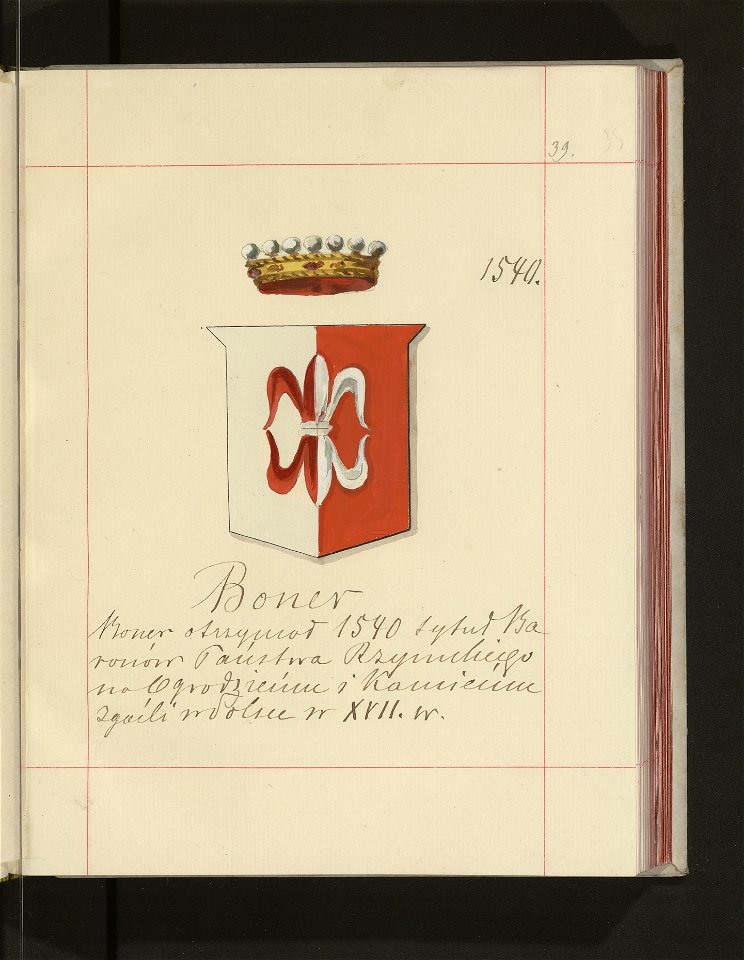 39.
1540.
Boner
Boner otrzymał 1540 tytuł Ba
ronów Państwa Rzymskiego
na Ogrodzieńcu i Kamieńcu
zgaśli w Polsce w XVII. w.